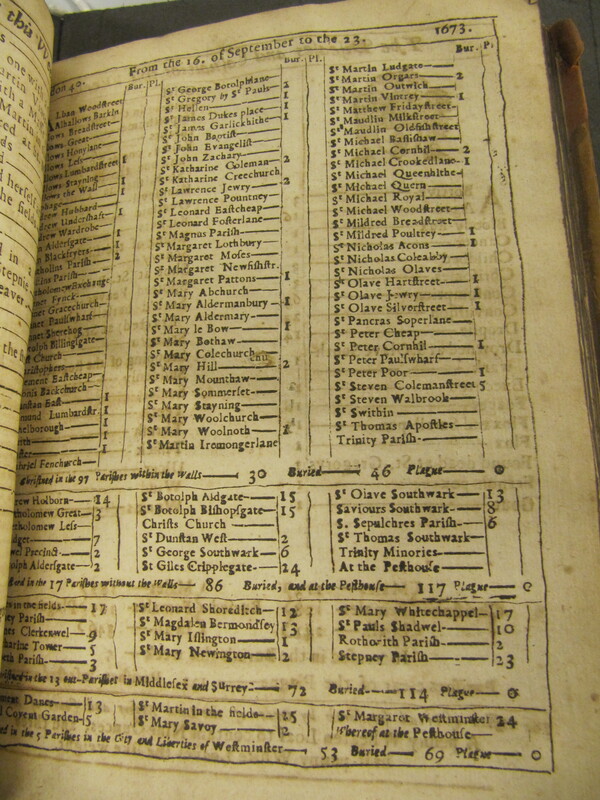 this W
From the 16. of September to the 23. 1673.
Bur. Pl.
Woodstreet
Alhallows Barkin
lows Breadstreet
lows Great
lows Honylane
lows Less
lows Lumbardstreet 1
lows Stayning 1
lows the Wall 1
drew Hubbard 1
drew Undershaft
drew Wardrobe 1
Aldersgate 1
Blackfryers 2
tholins Parish
tholomew Exchange
Fynck
Gracechurch
Paulswharf
Sherehog
tolph Billingsgate
Church
ristophers
ement Eastcheap
onis Backchurch
unstan East 1
mund Lumbardstr. 1
helborough 1
Fenchurch
Bur. Pl.
Sᵗ George Botolphlane
Sᵗ Gregory by Sᵗ Pauls 2
Sᵗ Hellen 1
Sᵗ James Dukes place 1
Sᵗ James Garlickhithe 1
Sᵗ John Baptist
Sᵗ John Evangelist
Sᵗ John Zachary
Sᵗ Katharine Coleman 2
Sᵗ Katharine Creechurch
Sᵗ Lawrence Jewry 2
Sᵗ Lawrence Pountney
Sᵗ Leonard Eastcheap
Sᵗ Leonard Fosterlane
Sᵗ Magnus Parish
Sᵗ Margaret Lothbury
Sᵗ Margaret Moses
Sᵗ Margaret Newfishstr.
Sᵗ Margaret Pattons 1
Sᵗ Mary Abchurch
Sᵗ Mary Aldermanbury 1
Sᵗ Mary Aldermary
Sᵗ Mary le Bow 1
Sᵗ Mary Bothaw
Sᵗ Mary Colechurch
Sᵗ Mary Hill 2
Sᵗ Mary Mounthaw
Sᵗ Mary Sommerset
Sᵗ Mary Stayning
Sᵗ Mary Woolchurch
Sᵗ Mary Woolnoth
Sᵗ Martin Iremongerlane
Bur. P
Sᵗ Martin Ludgate
Sᵗ Martin Orgars 2
Sᵗ Martin Outwich
Sᵗ Martin Vintrey 1
Sᵗ Matthew Fridaystreet
Sᵗ Maudlin Milkstreet
Sᵗ Maudlin Oldfishstreet
Sᵗ Michael Bassishaw
Sᵗ Michael Cornhil 2
Sᵗ Michael Crookedlane 1
Sᵗ Michael Queenhithe
Sᵗ Michael Quern
Sᵗ Michael Royal
Sᵗ Michael Woodstreet
Sᵗ Mildred Breadstreet
Sᵗ Mildred Poultrey 1
Sᵗ Nicholas Acons 1
Sᵗ Nicholas Coleabby
Sᵗ Nicholas Olaves
Sᵗ Olave Hartstreet 1
Sᵗ Olave Jewry 1
Sᵗ Olave Silverstreet 1
Sᵗ Pancras Soperlane
Sᵗ Peter Cheap
Sᵗ Peter Cornhil 1
Sᵗ Peter Paulswharf
Sᵗ Peter Poor 1
Sᵗ Steven Colemanstreet 5
Sᵗ Steven Walbrook
Sᵗ Swithin
Sᵗ Thomas Apostles
Trinity Parish
Christned in the 97 Parishes within the Walls 30 Buried 46 Plague 0
rew Holborn 14
tholomew Great 3
tholomew Less
dget 7
wel Precinct 2
olph Aldersgate 2
Sᵗ Botolph Aldgate 15
Sᵗ Botolph Bishopsgate 15
Christs Church
Sᵗ Dunstan West 2
Sᵗ George Southwark 6
St Giles Cripplegate 24
Sᵗ Olave Southwark 13
Saviours Southwark 8
S. Sepulchres Parish 6
Sᵗ Thomas Southwark
Trinity Minories
At the Pesthouse
in the 17 Parishes without the Walls 86 Buried, and at the Pesthouse 117 Plague 0
in the fields 17
ey Parish
mes Clerkenwel 9
harine Tower 5
eth Parish 3
Sᵗ Leonard Shoreditch 12
Sᵗ Magdalen Bermondsey 13
Sᵗ Mary Islington 1
Sᵗ Mary Newington 2
Sᵗ Mary Whitechappel 17
Sᵗ Pauls Shadwel 10
Rothorith Parish 2
Stepney Parish 23
in the 13 out-Parishes in Middlesex and Surrey 72 Buried 114 Plague 0
ment Danes 13
Covent Garden 5
Sᵗ Martin in the fields 25
Sᵗ Mary Savoy 2
Sᵗ Margaret Westminster 24
Whereof at the Pesthouse
in the 5 Parishes in the City and Liberties of Westminster 53 Buried 69 Plague 0